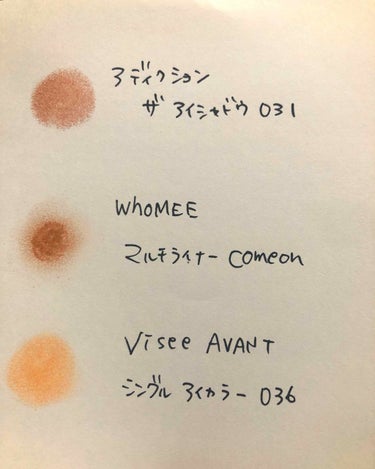 アディクション
ザ アイシャドウ 031
WHOMEE
マルチライナー comeon
Visee AVANT
シングル アイカラー 036